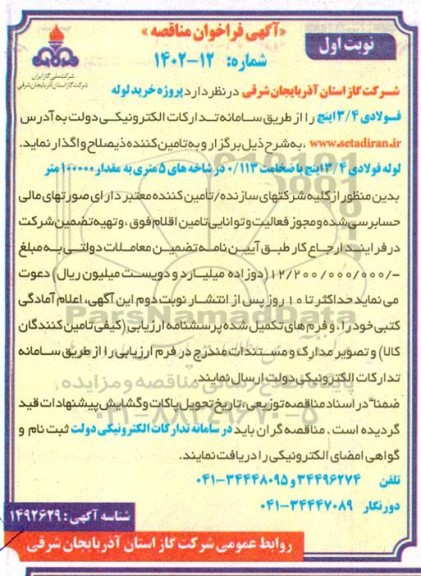 «آگهی فراخوان مناقصه»
نوبت اول
شماره: ۱۲-۱۴۰۲
شرکت ملی گاز ایران
شرکت گاز استان آذربایجان شرقی
شرکت گاز استان آذربایجان شرقی در نظر دارد پروژه خرید لوله
فولادی ۳/۴ اینچ را از طریق سامانه تدارکات الکترونیکی دولت به آدرس
www.setadiran.ir ، به شرح ذیل برگزار و به تامین کننده ذیصلاح واگذار نماید.
لوله فولادی ۳/۴ اینچ با ضخامت ۰/۱۱۳ در شاخه های ۵ متری به مقدار ۱۰۰۰۰۰ متر
بدین منظور از کلیه شرکتهای سازنده/تامین کننده معتبر دارای صورتهای مالی
حسابرسی شده و مجوز فعالیت و توانایی تامین اقلام فوق ، و تهیه تضمین شرکت
در فرایند ارجاع کار طبق آیین نامه تضمین معاملات دولتی به مبلغ
-/۱۲/۲۰۰/۰۰۰/۰۰۰ (دوازده میلیارد و دویست میلیون ریال) دعوت
می نماید حداکثر تا ۱۰ روز پس از انتشار نوبت دوم این آگهی، اعلام آمادگی
کتبی خود را، و فرم های تکمیل شده پرسشنامه ارزیابی (کیفی تامین کنندگان
کالا) و تصویر مدارک و مستندات مندرج در فرم ارزیابی را از طریق سامانه
تدارکات الکترونیکی دولت ارسال نمایند.
ضمنا" در اسناد مناقصه توزیعی ، تاریخ تحویل پاکات و گشایش پیشنهادات قید
گردیده است . مناقصه گران باید در سامانه تدارکات الکترونیکی دولت ثبت نام و
گواهی امضای الکترونیکی را دریافت نمایند.
تلفن ۳۴۴۹۶۲۷۴ و ۳۴۴۴۸۰۹۵-۰۴۱
دورنگار ۳۴۴۴۷۰۸۹-۰۴۱
شناسه آگهی : ۱۴۹۲۶۲۹
روابط عمومی شرکت گاز استان آذربایجان شرقی
ParsNamadData
پایگاه اطلاع رسانی مناقصه و مزایده
۰۲۱-۸۸۳۴۹۶۷۰-۵